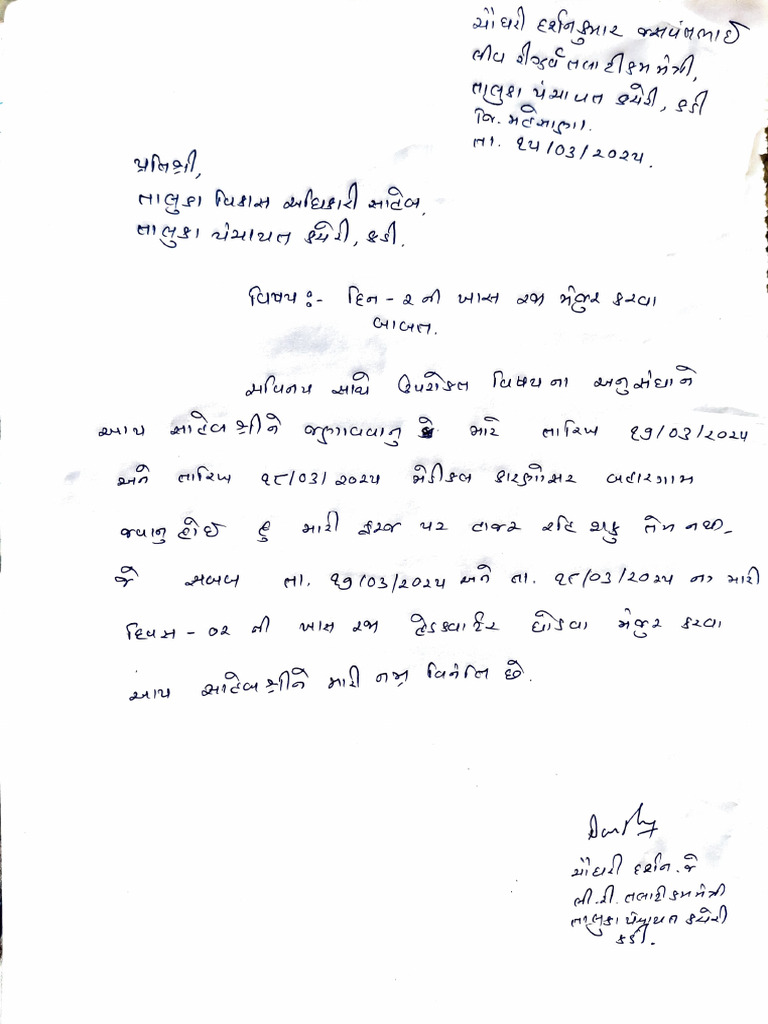 ચૌધરી દર્શનકુમાર જશવંતભાઈ
લીવ રીઝર્વ તલાટી કમ મંત્રી,
તાલુકા પંચાયત કચેરી, કડી
જિ. મહેસાણા.
તા. ૧૫/૦૩/૨૦૨૫.
પ્રતિશ્રી,
તાલુકા વિકાસ અધિકારી સાહેબ,
તાલુકા પંચાયત કચેરી, કડી.
વિષય:- દિન - ૨ ની ખાસ રજા મંજુર કરવા
બાબત.
સવિનય સાથે ઉપરોક્ત વિષયના અનુસંધાને
આપ સાહેબશ્રીને જણાવવાનુ કે મારે તારિખ ૧૭/૦૩/૨૦૨૫
અને તારિખ ૧૮/૦૩/૨૦૨૫ મેડીકલ કારણોસર બહારગામ
જવાનુ હોઈ હુ મારી ફરજ પર હાજર રહિ શકુ તેમ નથી.
જે સબબ તા. ૧૭/૦૩/૨૦૨૫ અને તા. ૧૮/૦૩/૨૦૨૫ ના મારી
દિવસ - ૦૨ ની ખાસ રજા હેડકવાર્ટર છોડવા મંજુર કરવા
આપ સાહેબશ્રીને મારી નમ્ર વિનંતિ છે.
ચૌધરી દર્શન. જે
લી. રી. તલાટી કમ મંત્રી
તાલુકા પંચાયત કચેરી
કડી.